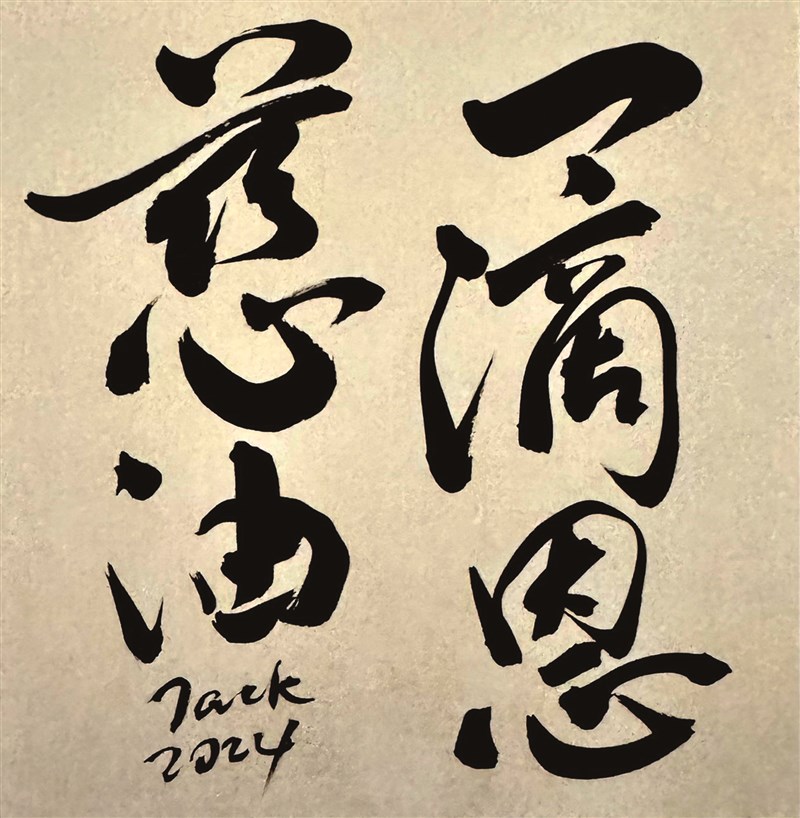 一滴恩
慈油
Jack
2024